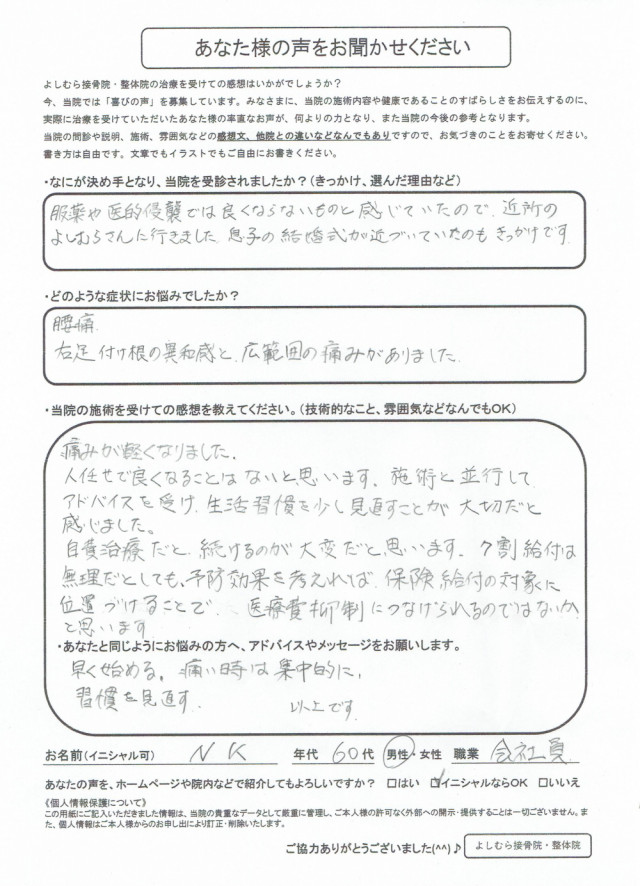 あなた様の声をお聞かせください
よしむら接骨院・整体院の治療を受けての感想はいかがでしょうか？
今、当院では「喜びの声」を募集しています。みなさまに、当院の施術内容や健康であることのすばらしさをお伝えするのに、
実際に治療を受けていただいたあなた様の率直なお声が、何よりの力となり、また当院の今後の参考となります。
当院の問診や説明、施術、雰囲気などの感想文、他院との違いなどなんでもありですので、お気づきのことをお寄せください。
書き方は自由です。文章でもイラストでもご自由にお書きください。
・なにが決め手となり、当院を受診されましたか？（きっかけ、選んだ理由など）
服薬や医的侵襲では良くならないものと感じていたので、近所の
よしむらさんに行きました。息子の結婚式が近づいていたのもきっかけです。
・どのような症状にお悩みでしたか？
腰痛
右足付け根の異和感と、広範囲の痛みがありました。
・当院の施術を受けての感想を教えてください。（技術的なこと、雰囲気などなんでもOK）
痛みが軽くなりました。
人任せで良くなることはないと思います。施術と並行して
アドバイスを受け、生活習慣を少し見直すことが大切だと
感じました。
自費治療だと、続けるのが大変だと思います。7割給付は
無理だとしても、予防効果を考えれば、保険給付の対象に
位置づけることで、医療費抑制につなげられるのではないか
と思います
・あなたと同じようにお悩みの方へ、アドバイスやメッセージをお願いします。
早く始める。痛い時は集中的に、
習慣を見直す。 以上です。
お名前（イニシャル可） N K 年代 60代 男性・女性 職業 会社員
あなたの声を、ホームページや院内などで紹介してもよろしいですか？ □はい ☑イニシャルならOK □いいえ
《個人情報保護について》
この用紙にご記入いただきました情報は、当院の貴重なデータとして厳重に管理し、ご本人様の許可なく外部への開示・提供することは一切ございません。ま
た、個人情報はご本人様からのお申し出により訂正・削除いたします。
ご協力ありがとうございました(^^)♪ よしむら接骨院・整体院